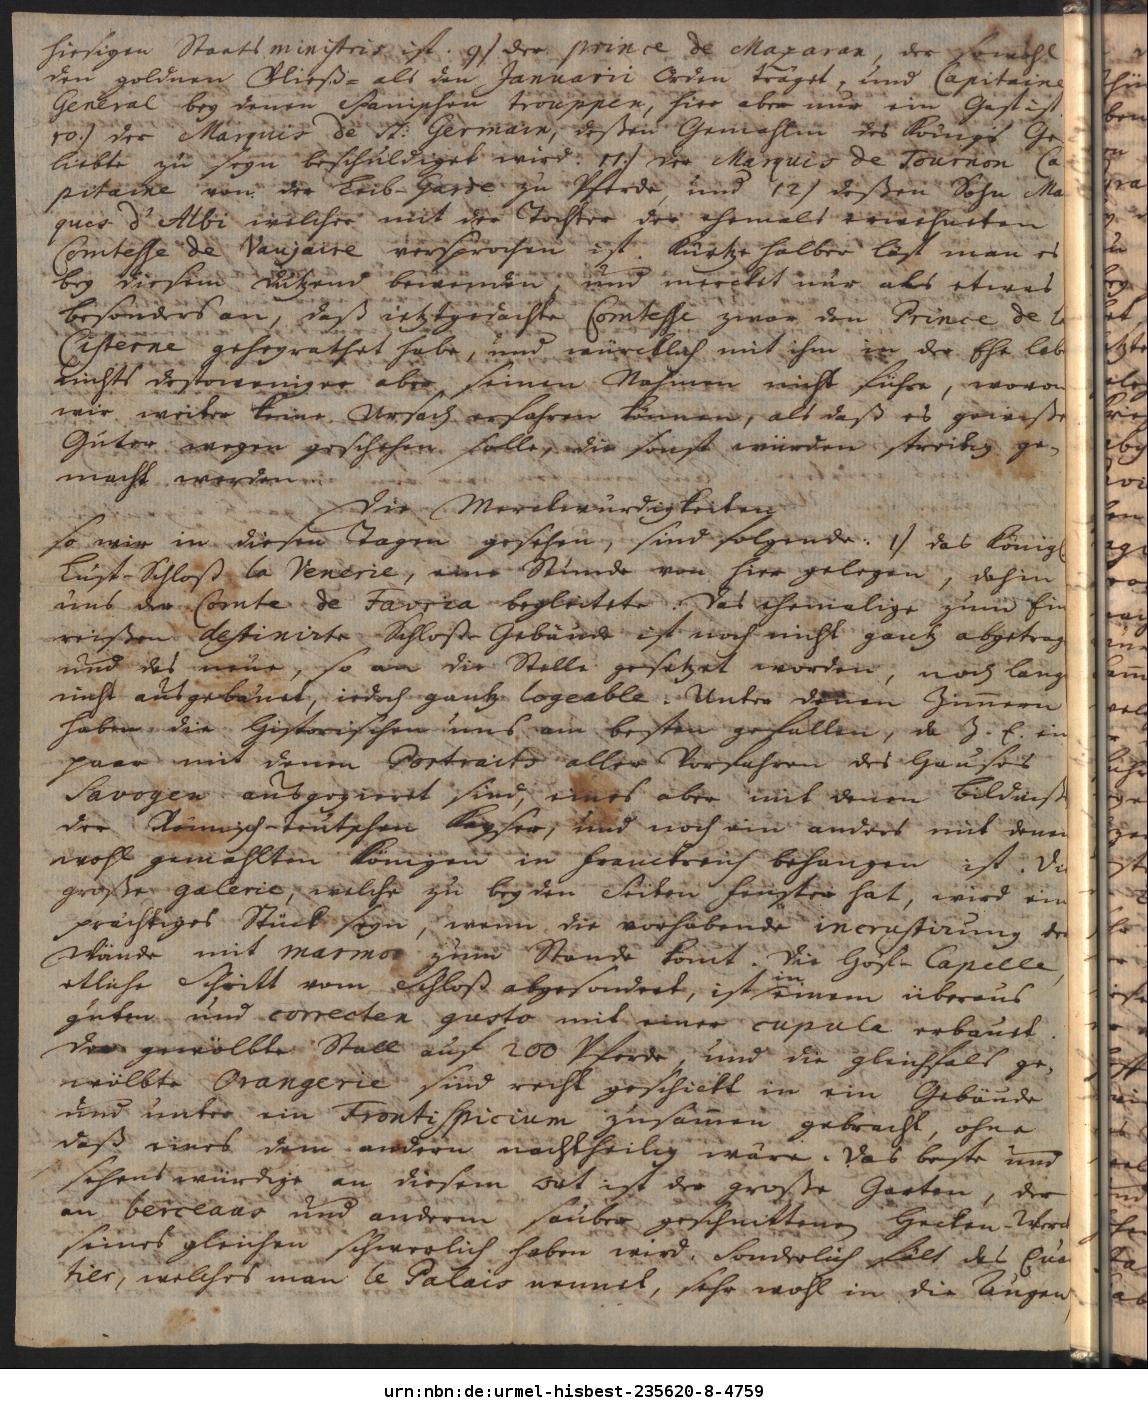 hiesigen Staats ministris ist. 9) der prince de Maxaran, der sowohl
den goldnen Vließ- als den Januarii Orden träget, und Capitaine
General bey denen Spanischen trouppen, hier aber nur ein Gast ist
10.) der Marquis de St: Germain, deßen Gemahlin des Königs Ge-
liebte zu seyn beschuldiget wird. 11.) der Marquis de Tournon Ca
pitaine von der Leib-Garde zu Pferde, und 12) deßen Sohn Ma
quis d'Albi welcher mit der Tochter der ehemals erwehnten
Comtesse de Vaujaire versprochen ist. Kürtze halber läst man es
bey diesem Dutzend bewenden, und mercket nur als etwas
besonders an, daß ietztgedachte Comtesse zwar den Prince de la
Cisterne geheyrathet habe, und würcklich mit ihm in der Ehe lebe
nichts destoweniger aber seinen Nahmen nicht führe, wovon
wir weiter keine Ursach erfahren können, als daß es gewißer
Güter wegen geschehen solle, die sonst würden streitig ge-
macht werden.
Die Merckwürdigkeiten
so wir in diesen Tagen gesehen, sind folgende. 1) das Königl
Lust-Schloß la Venerie, eine Stunde von hier gelegen, dahin
uns der Comte de Favria begleitete. Das ehemalige zum Ein
reißen destinirte Schloß-Gebäude ist noch nicht gantz abgetrag
und das neue, so an die Stelle gesetzet worden, noch lang
nicht ausgebauet, iedoch gantz logeable. Unter denen Zimmern
haben die Historischen uns am besten gefallen, da z. E. ein
paar mit denen Portraits aller Vorfahren des Hauses
Savoyen ausgezieret sind, eines aber mit denen Bildniß
der Römisch-teutschen Kayser, und noch ein anders mit denen
wohl gemahlten Königen in Franckreich behangen ist. Die
große galerie, welche zu beyden Seiten Fenster hat, wird ein
prächtiges Stück seyn, wenn die vorhabende incrustirung der
Wände mit marmor zum Stande komt. Die Hof-Capelle,
etliche Schritt vom Schloß abgesondert, ist in einem überaus
guten und correcten gusto mit einer cupula erbauet.
Der gewölbte Stall auf 200 Pferde, und die gleichfals ge-
wölbte Orangerie sind recht geschickt in ein Gebäude
und unter ein Frontispicium zusamen gebracht, ohne
daß eines dem andern nachtheilig wäre. Das beste und
sehenswürdige an diesem Ort ist der große Garten, der
an berceaus und anderm sauber geschnittenen Hecken-Werck
seines gleichen schwerlich haben wird. Sonderlich fält das Quar
tier, welches man le Palais nennet, sehr wohl in die Augen
urn:nbn:de:urmel-hisbest-235620-8-4759